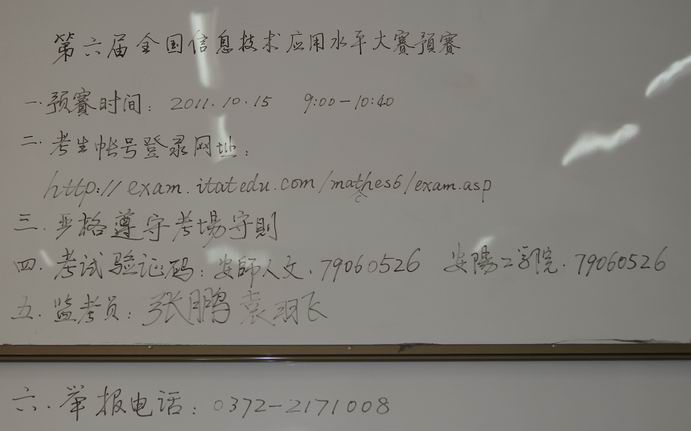 第六届全国信息技术应用水平大赛预赛
一.预赛时间: 2011.10.15 9:00-10:40
二.考生帐号登录网址:
http://exam.itatedu.com/mathes6/exam.asp
三.严格遵守考場守則
四.考试验证码:安師人文.79060526 安陽工学院.79060526
五.监考员:张鹏 袁羽飞
六.举报电话:0372-2171008